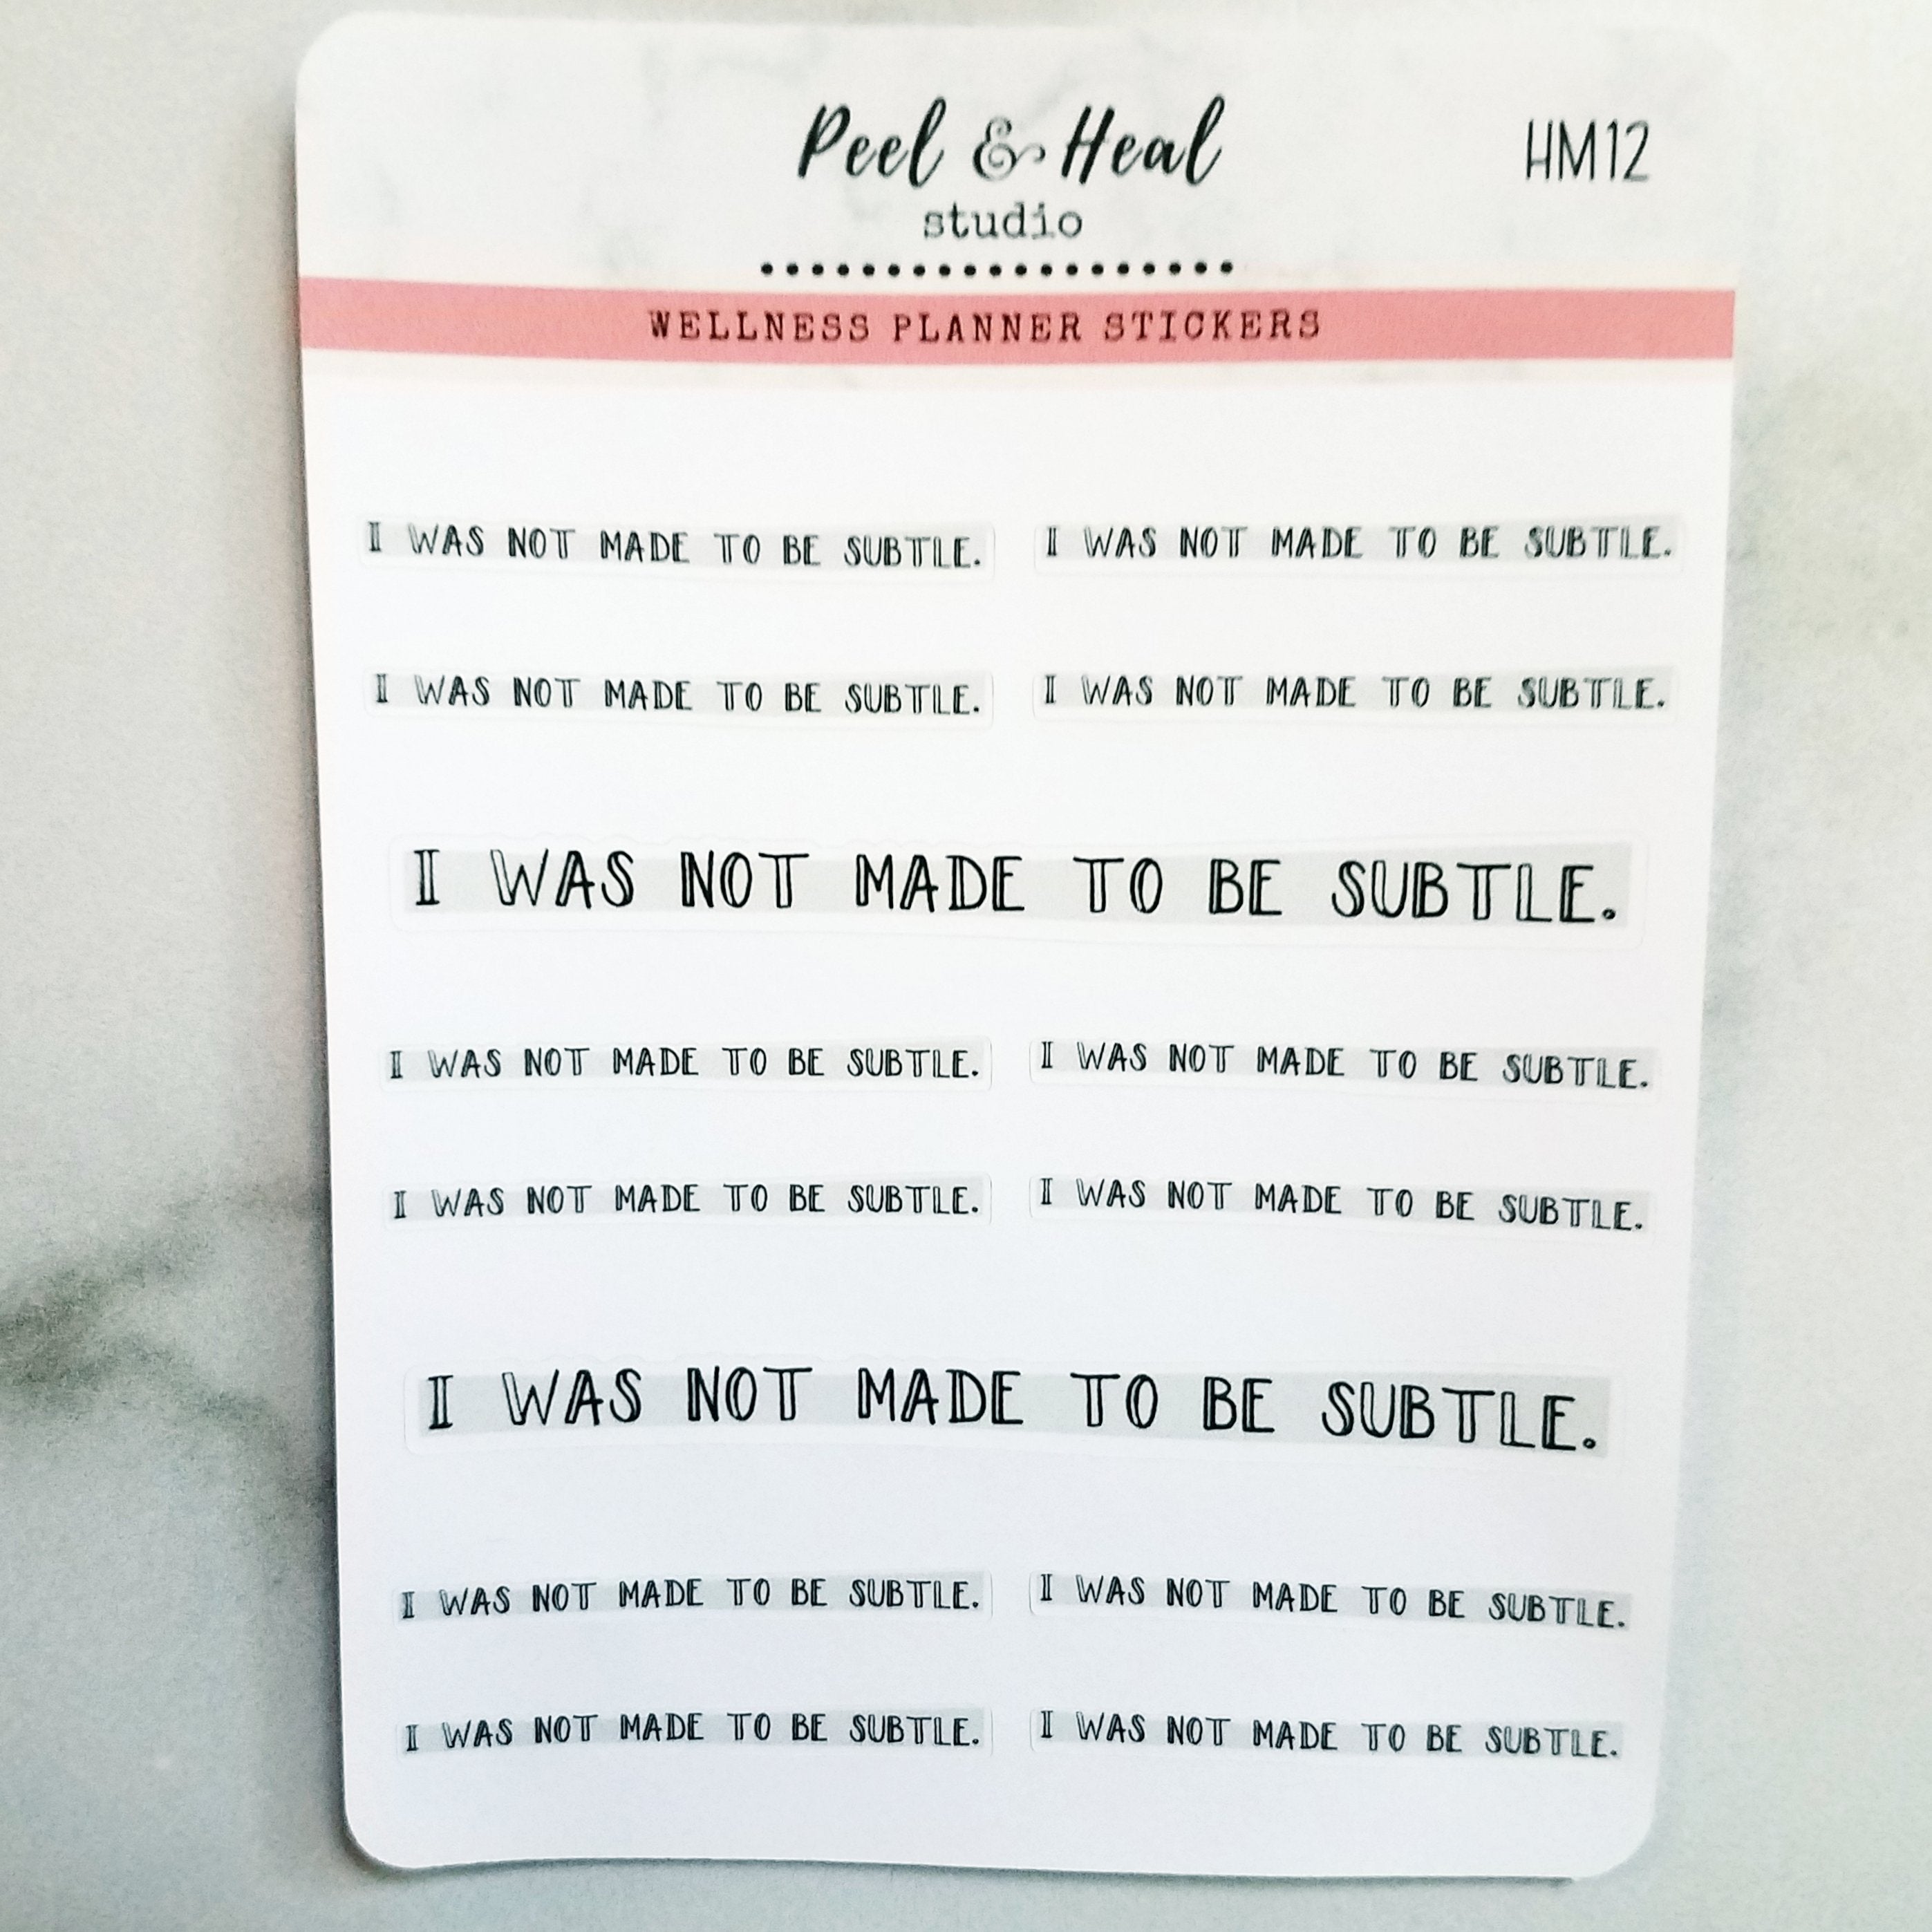 Peel & Heal
HM12
studio
WELLNESS PLANNER STICKERS
I WAS NOT MADE TO BE SUBTLE. I WAS NOT MADE TO BE SUBTLE.
I WAS NOT MADE TO BE SUBTLE. I WAS NOT MADE TO BE SUBTLE.
I WAS NOT MADE TO BE SUBTLE.
I WAS NOT MADE TO BE SUBTLE. I WAS NOT MADE TO BE SUBTLE.
I WAS NOT MADE TO BE SUBTLE. I WAS NOT MADE TO BE SUBTLE.
I WAS NOT MADE TO BE SUBTLE.
I WAS NOT MADE TO BE SUBTLE. I WAS NOT MADE TO BE SUBTLE.
I WAS NOT MADE TO BE SUBTLE. I WAS NOT MADE TO BE SUBTLE.